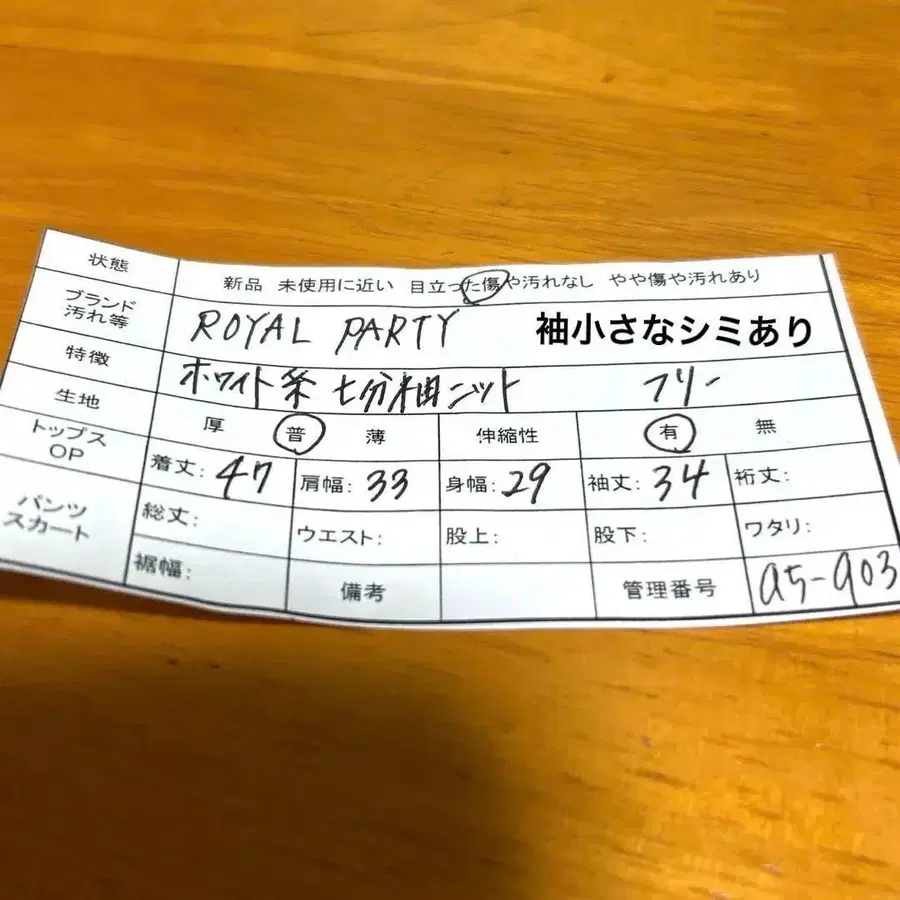 状態 新品 未使用に近い 目立った傷や汚れなし やや傷や汚れあり
ブランド 汚れ等 ROYAL PARTY 袖小さなシミあり
特徴 ホワイト系 七分袖ニット フリー
生地 厚 普 薄 伸縮性 有 無
トップス OP 着丈: 47 肩幅: 33 身幅: 29 袖丈: 34 裄丈:
パンツ スカート 総丈: ウエスト: 股上: 股下: ワタリ:
裾幅: 備考 管理番号 a5-903